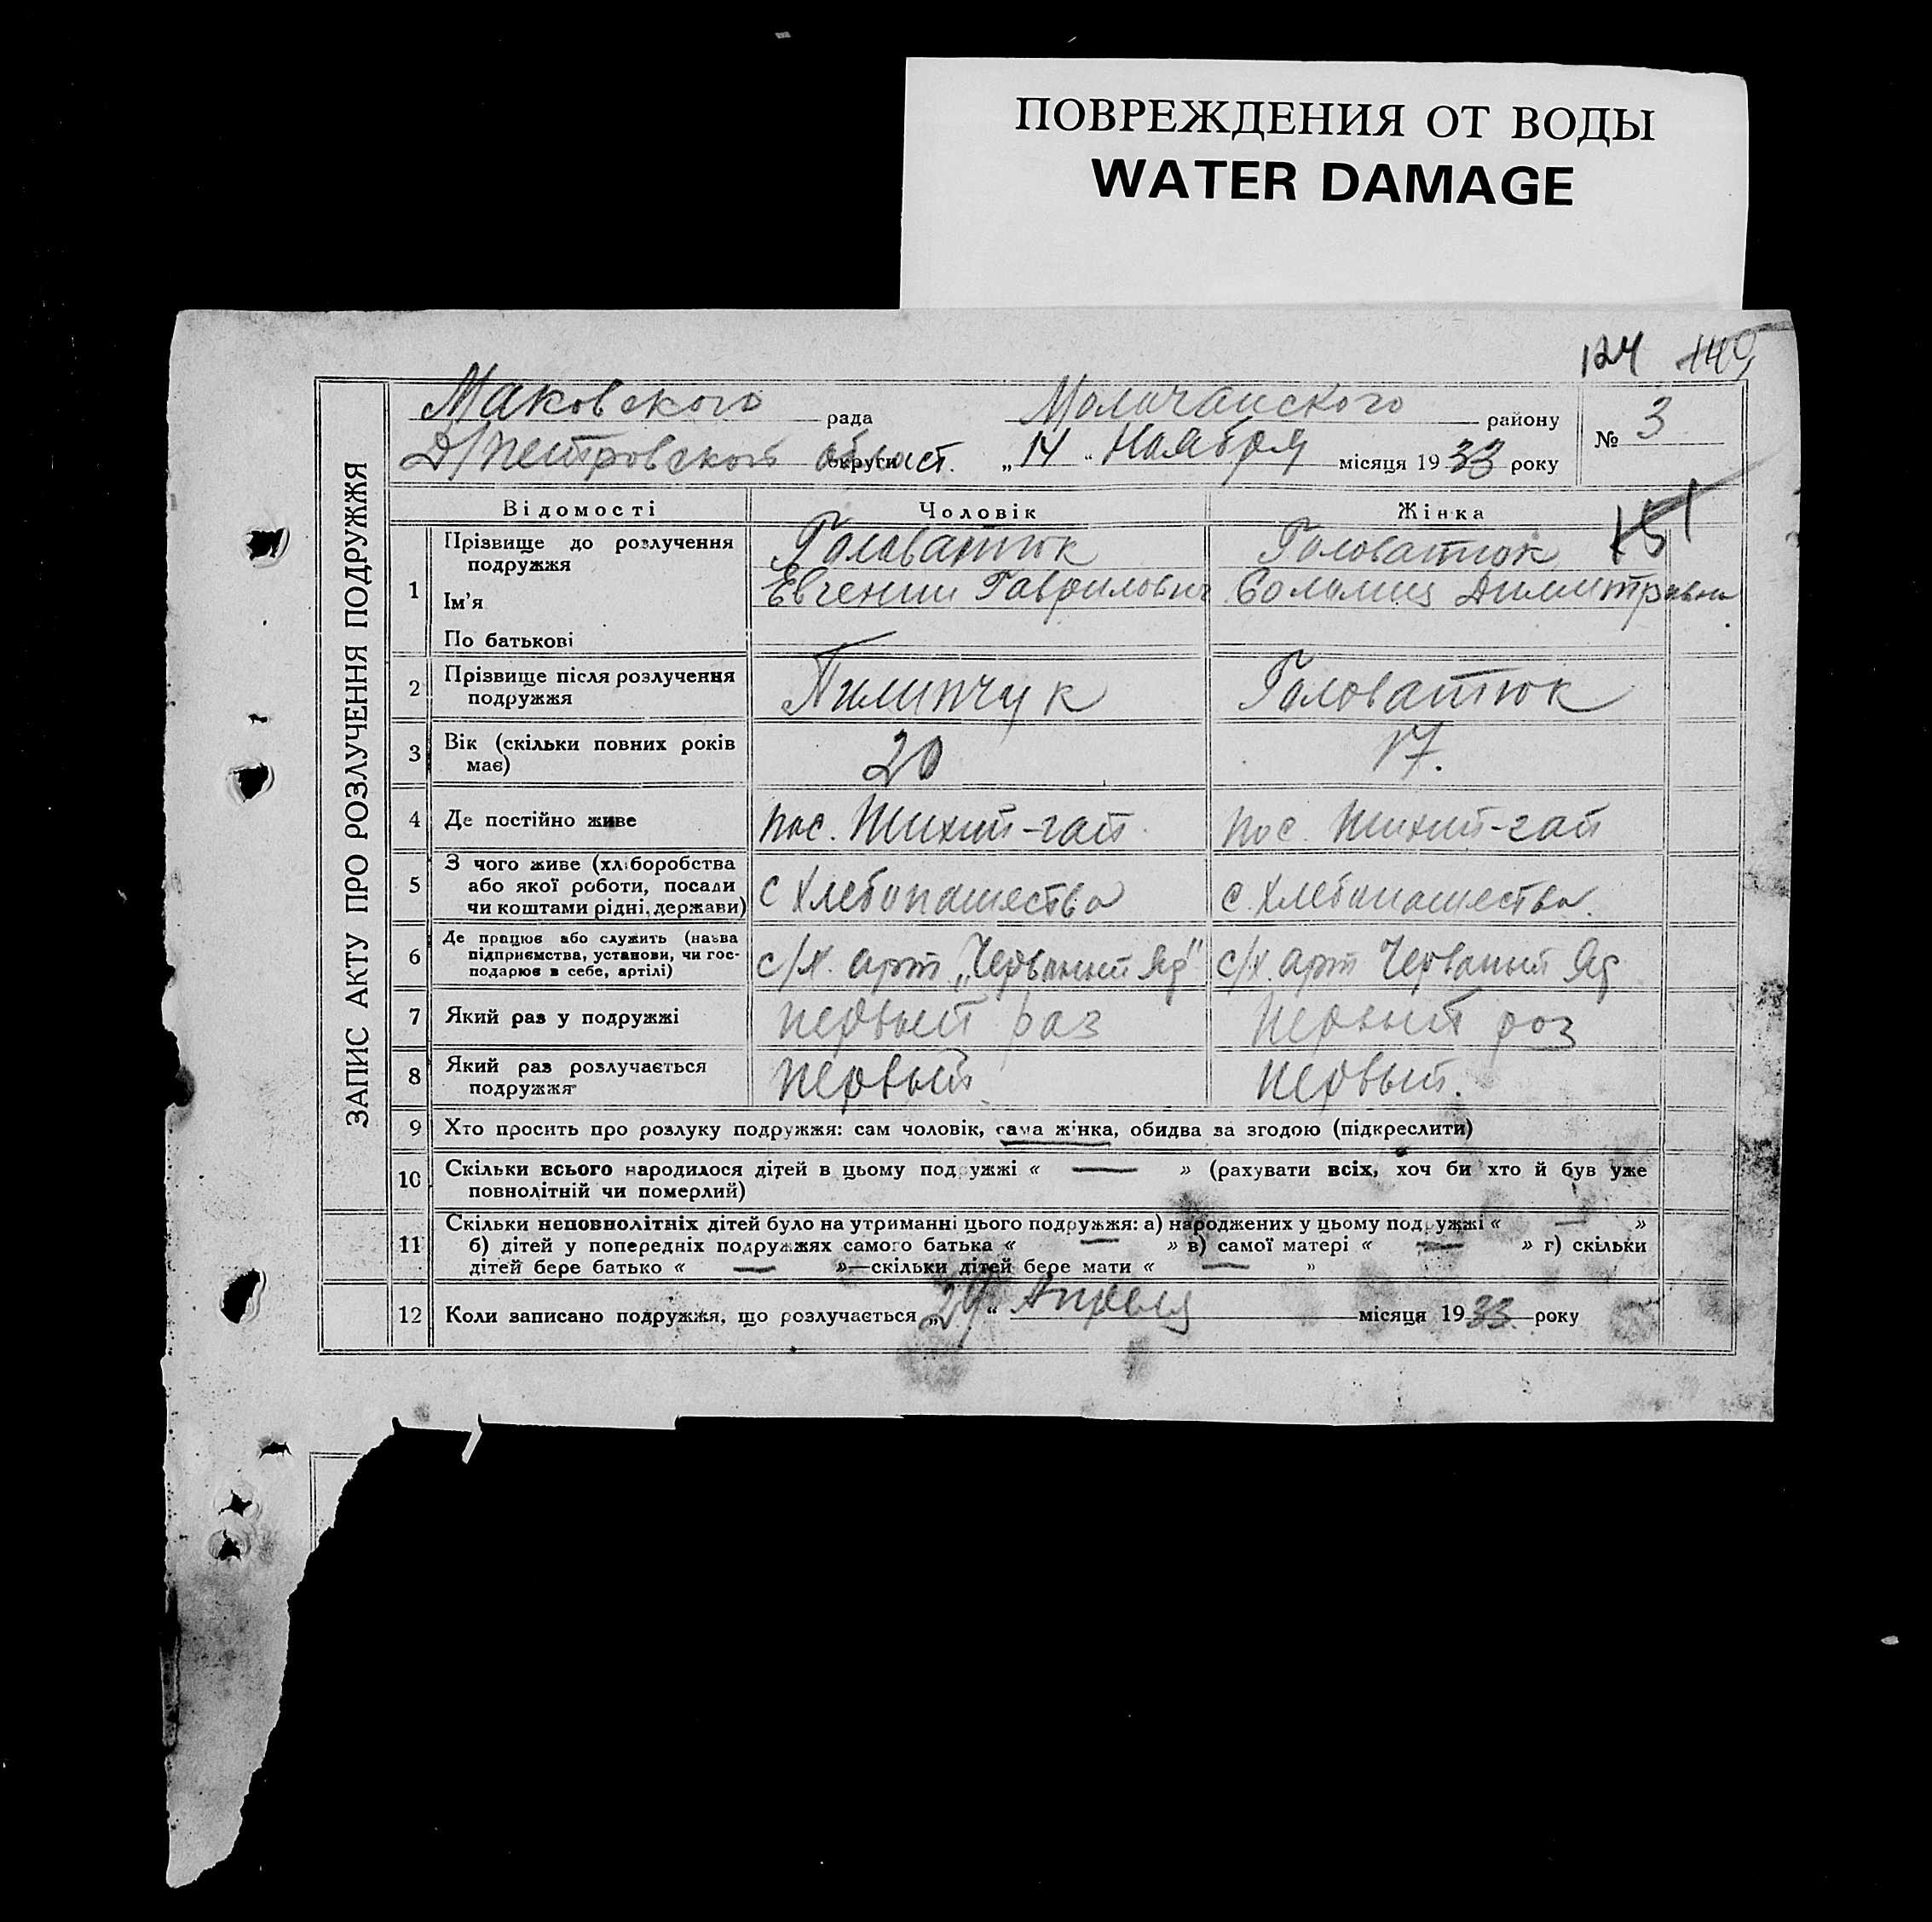 ПОВРЕЖДЕНИЯ ОТ ВОДЫ
WATER DAMAGE
124
ЗАПИС АКТУ ПРО РОЗЛУЧЕННЯ ПОДРУЖЖЯ
Маковского рада Молочанского району № 3
Д/Петровской област. округи „14“ Ноября місяця 1933 року
151
Відомості Чоловік Жінка
1 Прізвище до розлучення подружжя Головатюк Головатюк
Ім’я Евгений Гаврилович Димитровна
По батькові
2 Прізвище після розлучення подружжя Пилипчук Головатюк
3 Вік (скільки повних років має) 20 17.
4 Де постійно живе пос. Тихий-гай пос. Тихий-гай
5 З чого живе (хліборобства або якої роботи, посади чи коштами рідні, держави) с хлебопашества с хлебопашества.
6 Де працює або служить (назва підприємства, установи, чи господарює в себе, артілі) с/х. арт „Червоный Яр" с/х. арт Червоный Яр
7 Який раз у подружжі первый раз первый раз
8 Який раз розлучається подружжя первый первый.
9 Хто просить про розлуку подружжя: сам чоловік, сама жінка, обидва за згодою (підкреслити)
10 Скільки всього народилося дітей в цьому подружжі « — » (рахувати всіх, хоч би хто й був уже
повнолітній чи померлий)
11 Скільки неповнолітніх дітей було на утриманні цього подружжя: а) народжених у цьому подружжі « — »
б) дітей у попередніх подружжях самого батька « — » в) самої матері « — » г) скільки
дітей бере батько « — »—скільки дітей бере мати « — »
12 Коли записано подружжя, що розлучається „29“ Апреля місяця 1933 року